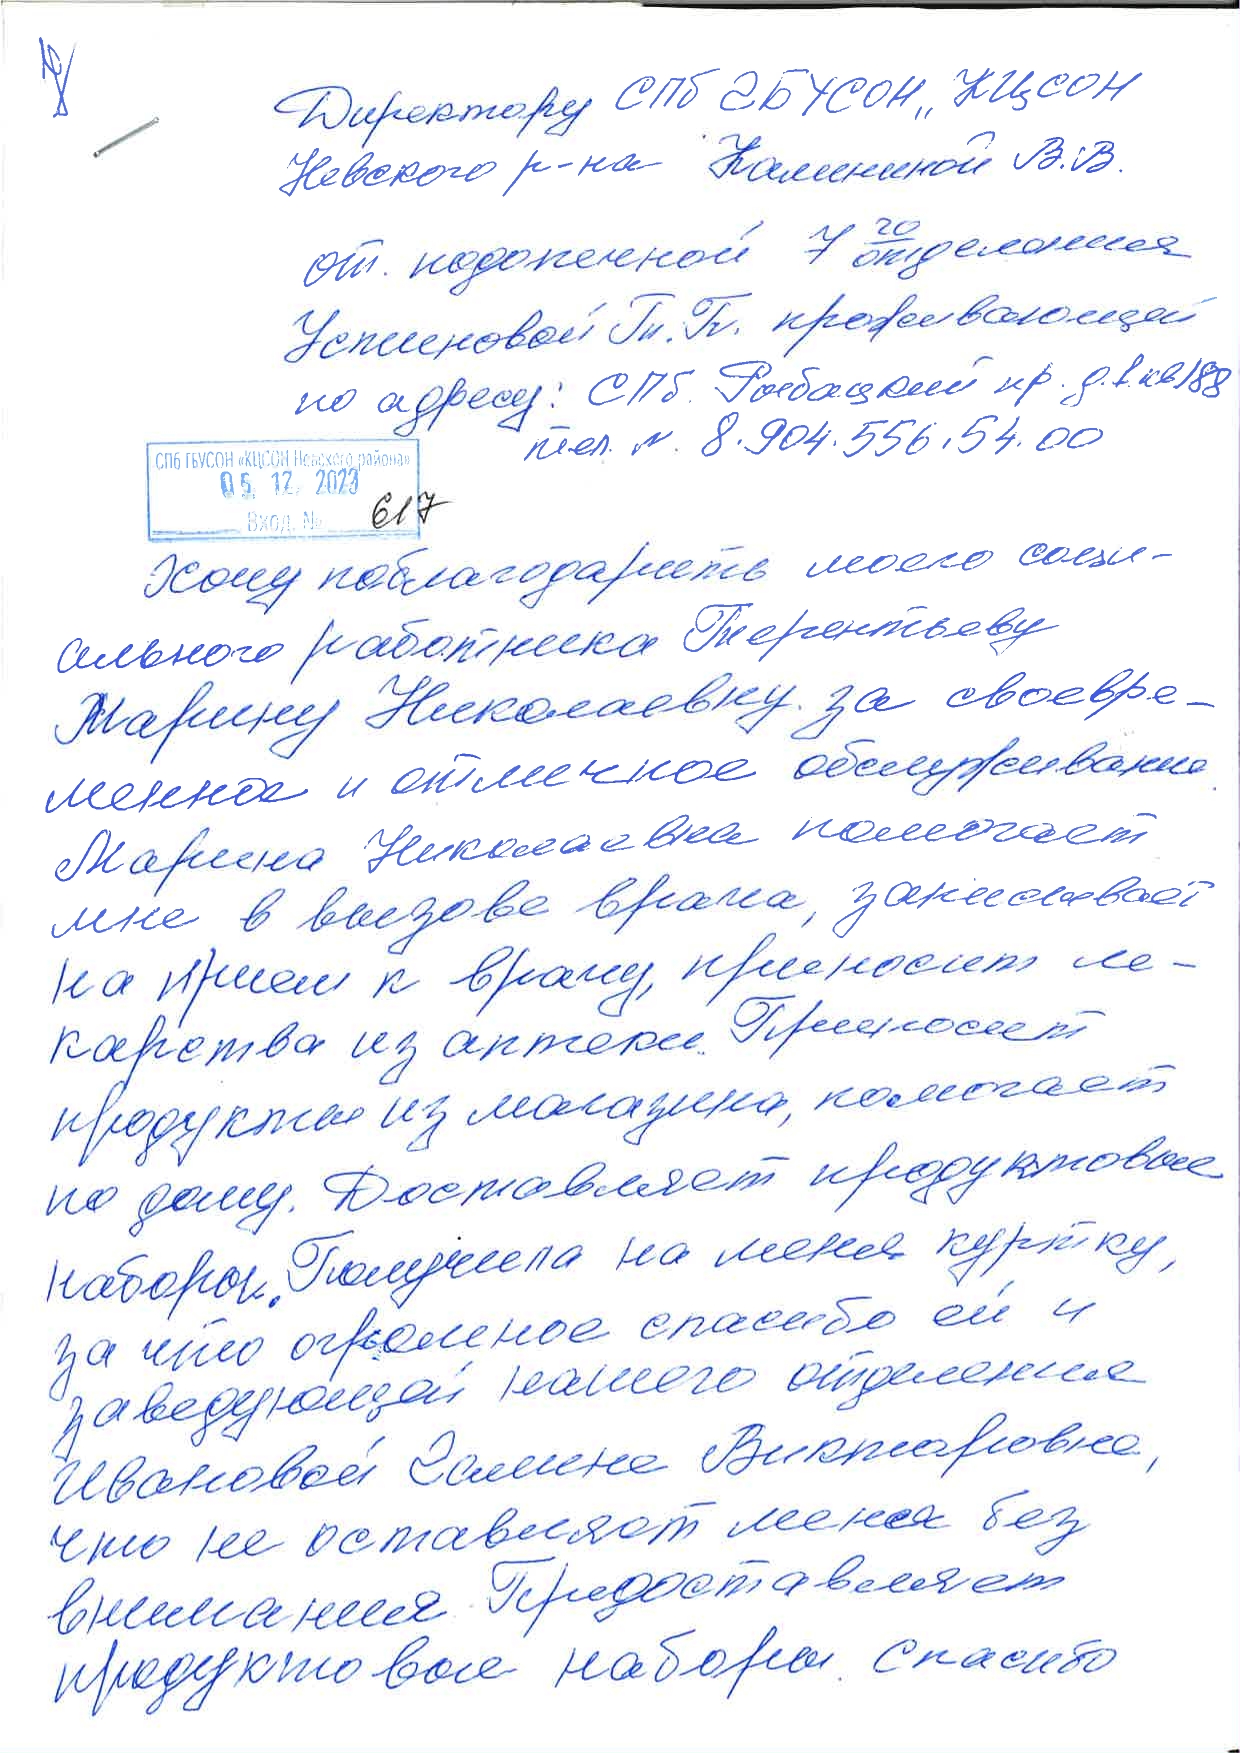 Директору СПб ГБУСОН „КЦСОН
Невского р-на Калининой В.В.
от. подопечной 7го отделения
Устиновой Т. Т. проживающей
по адресу: СПб. Рыбацкий пр. д.1.кв188
тел. N. 8.904.556.54.00
СПб ГБУСОН «КЦСОН Невского района»
05. 12. 2023
Вход. № 617
Хочу поблагодарить моего соци-
ального работника Терентьеву
Марину Николаевну. за своевре-
менное и отличное обслуживание.
Марина Николаевна помогает
мне в вызове врача, записывает
на прием к врачу, приносит ле-
карства из аптеки. Приносит
продукты из магазина, помогает
по дому. Доставляет продуктовые
наборы. Получила на меня куртку,
за что огромное спасибо ей и
заведующей нашего отделения
Ивановой Галине Викторовне,
что не оставляют меня без
внимания. Предоставляет
продуктовые наборы. Спасибо